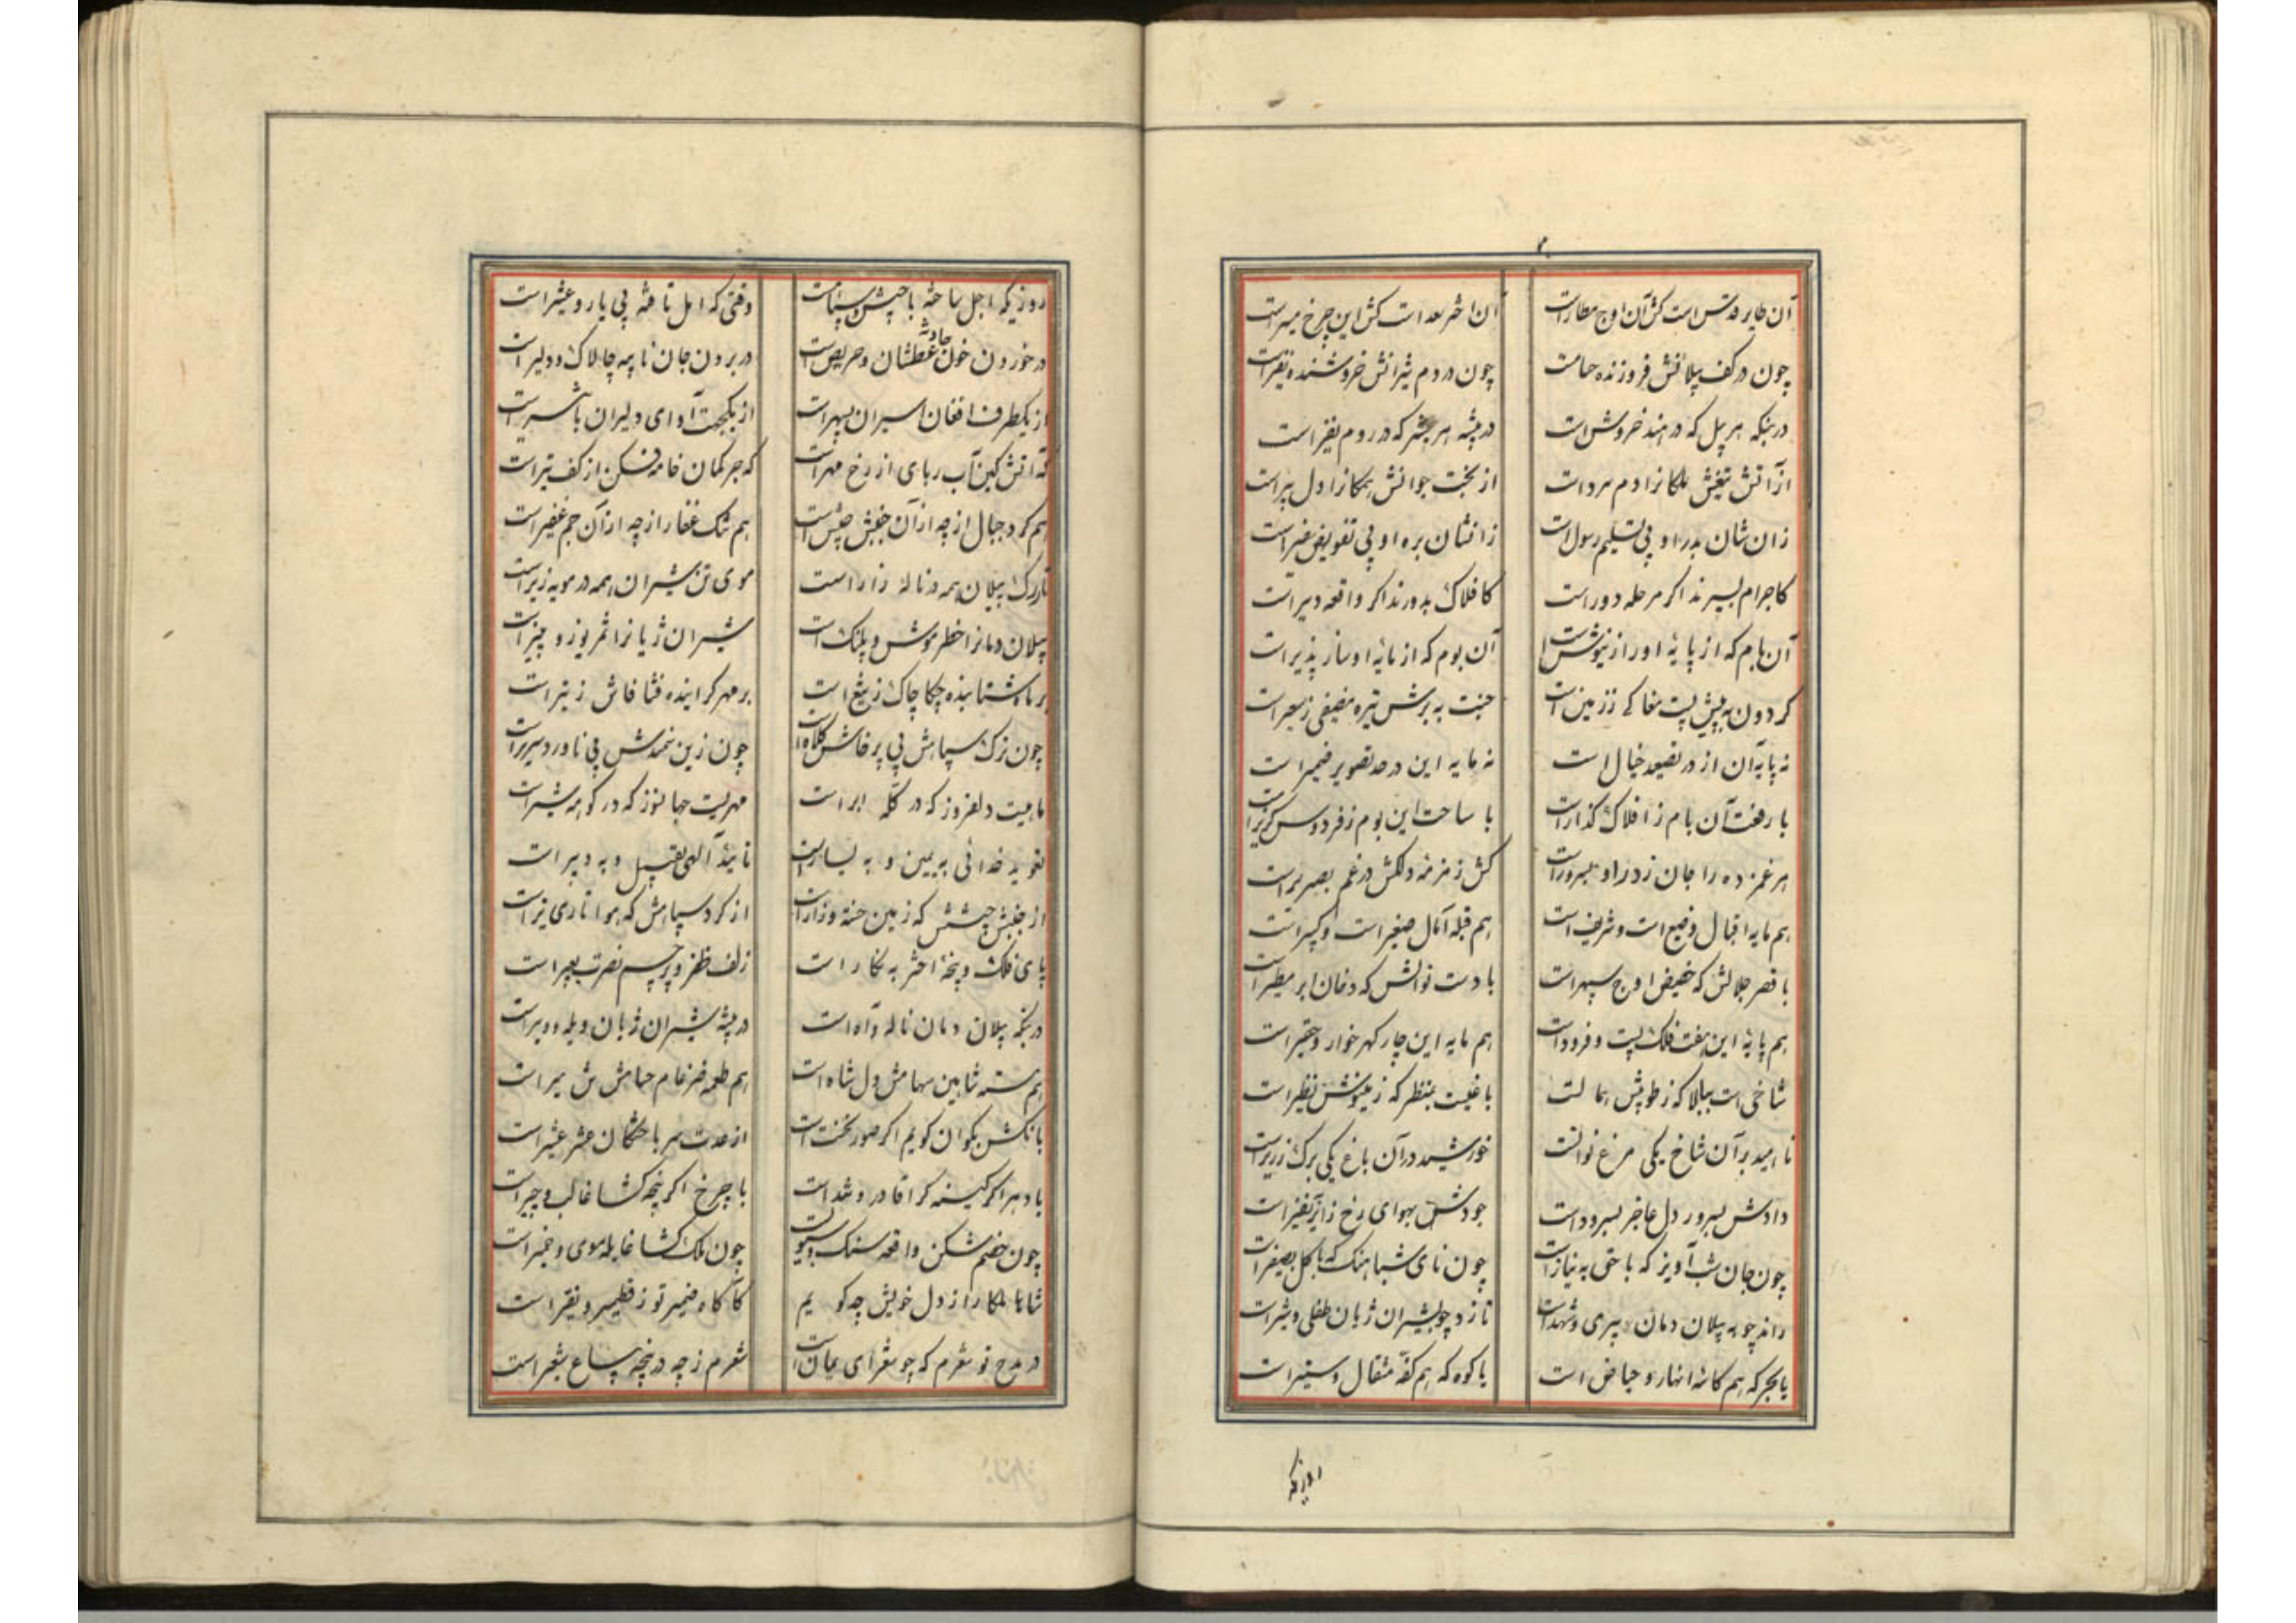 آن طایر قدس است کش آن اوج مطار است
آن اختر سعد است کش این چرخ مسیر است
چون در کف پیلانش فروزنده حسام است
چون در دم شیرانش خروشنده نفیر است
در بنکه هر پیل که در هند خروش است
در بیشه هر شیر که در روم نفیر است
از آتش تیغش ملکانرا دم سرد است
از بخت جوانش همکانرا دل پیر است
زان شان بدر او پی تسلیم رسول است
زانشان بره او پی تفویض سفیر است
کاجرام بسپرند اکر مرحله دور است
کافلاک بدورند اکر واقعه دیر است
آن بام که از پایهٔ او راز نیوش است
آن بوم که از مایهٔ او ساز پذیر است
کردون به پیش پست مغاکی ز زمین است
جنت به برش تیره مضیفی ز سعیر است
نه پایه آن از در تصعید خیال است
نه مایه این در حد تصویر ضمیر است
با رفعت آن بام ز افلاک گذار است
با ساحت این بوم ز فردوس گزیر است
هر غمزده را جان ز در او بسرور است
کش زمزمه دلکش در غم بصریر است
هم مایه اقبال وضیع است و شریف است
هم قبله آمال صغیر است و کبیر است
با قصر جلالش که حضیض اوج سپهر است
با دست نوالش که دخان ابر مطیر است
هم پایهٔ این هفت فلک پست و فرود است
هم مایه این چار کهر خوار و حقیر است
شاخی است ببالا که ز طوبیش همالست
باغیست بمنظر که ز مینوش نظیر است
ناهید بر آن شاخ یکی مرغ نوا
خورشید در آن باغ یکی برک زریر است
دادش بسرور دل عاجز بسرود است
جودش بهوای رخ زایر
چون جان شب آویز که با حق به نیاز است
چون نای شباهنک که با کل بصفیر است
راند چو به پیلان دمان پیری و شهد است
تازد چو بشیران ژیان طفلی و شیر است
با بحر که هم کاسهٔ انهار و حیاض است
با کوه که هم کفهٔ مثقال و ستیر است
روزیکه
روزیکه اجل ساخته با جیش و سپاه است
وقتی که امل تافته بی یار و عشیر است
در خوردن خون حادثه عطشان و حریص است
در بردن جان نایبه چالاک و دلیر است
از یکطرف افغان اسیران بسپهر است
از یکجهت آوای دلیران باثیر است
که آتش کین آب ربای از رخ مهر است
که جرم کمان خامه فکن از کف تیر است
هم کرد جبال از چه از آن جنبش جیش است
هم تنک غفار از چه از آن جم غفیر است
تارک پیلان همه در ناله زار است
موی تن شیران همه در مویه زیر است
پیلان دمانرا خطر موش و پلنک است
شیران ژیانرا ثمر یوز و پنیر است
بر ماه شتابنده چکاچاک ز تیغ است
بر مهر کراینده فشافاش ز تیر است
چون ترک سپاهش پی پرخاش کلاه است
چون زین سمندش پی ناورد سریر است
ماهیست دلفروز که در کله ابر است
مهریست جهانسوز که در کوهه شیر است
تعویذ خدائی به یمین و به یسار است
تایید آلهی بقبیل و به دبیر است
از جنبش جیشش که زمین خسته و زار است
از کرد سپاهش که هوا تاری و تیر است
پای فلک و پنجهٔ اختر به نکار است
زلف ظفر و پرچم نصرت بعبیر است
در بنکه پیلان دمان ناله و آه است
در بیشه شیران ژیان ویله و ویر است
هم مسته شاهین سهامش دل شاه است
هم طعمه ضرغام حسامش تن میر است
بانکش بکوان کویم اکر صور نخست است
از عدت سر با حشمان حشر عشیر است
با دهر اکر کینه کرا قادر و شد است
با چرخ اکر پنجه کشا غالب و چیر است
چون خصم شکن واقعه سنک و سبو است
چون ملک کشا غایله موی و خمیر است
شاها ملکا راز دل خویش چه کویم
کاکاه ضمیر تو ز قطمیر و نقیر است
در مدح تو شعرم که چو شعرای یمان است
شعرم ز چه در پنجه سباع بشعیر است